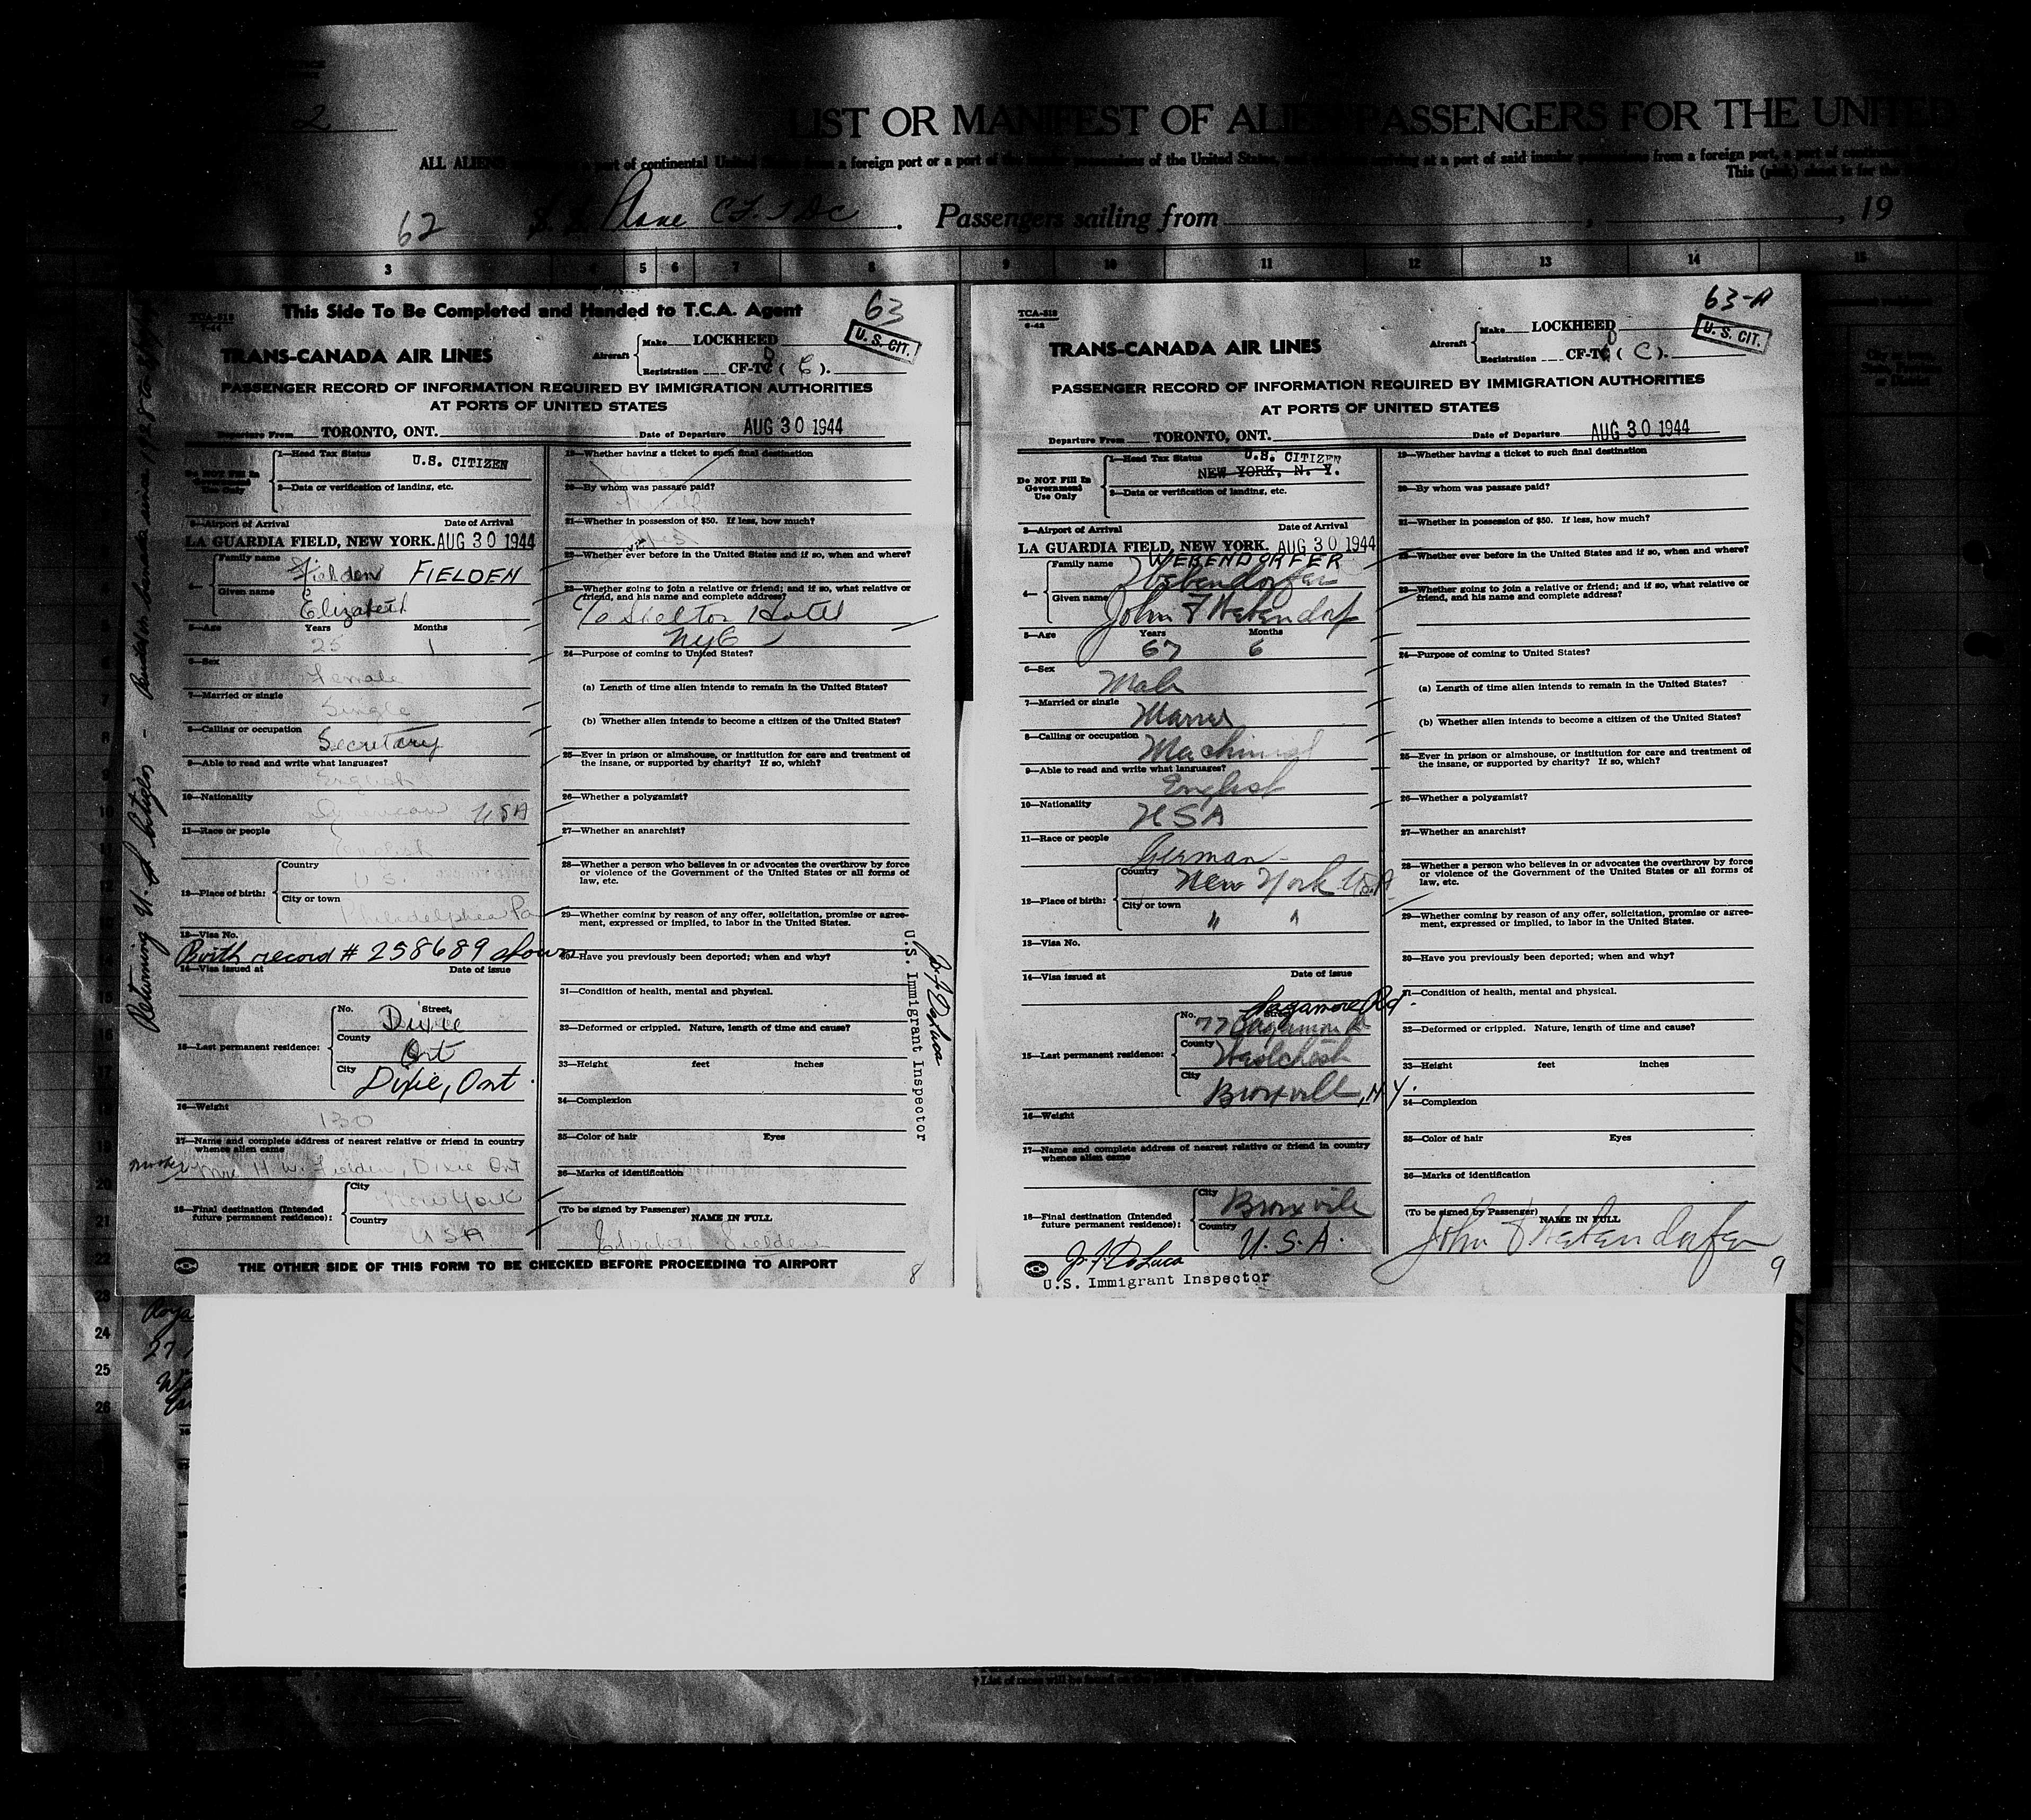 2
LIST OR MANIFEST OF ALIEN PASSENGERS FOR THE UNITED
ALL ALIENS part of continental United from a foreign port or a part of the of the United States, arriving at a part of said insular from a foreign port, a part of
This (pink) sheet is for the
62 S.S. Plane CF-TDC. Passengers sailing from , 19
3 4 5 6 7 8 9 10 11 12 13 14 15
This Side To Be Completed and Handed to T.C.A. Agent
63
TCA-518
7-44
U. S. CIT.
TRANS-CANADA AIR LINES
Aircraft
Make LOCKHEED
Registration CF-TD ( C ).
PASSENGER RECORD OF INFORMATION REQUIRED BY IMMIGRATION AUTHORITIES
AT PORTS OF UNITED STATES
Departure From TORONTO, ONT. Date of Departure AUG 30 1944
Do NOT Fill In
Government
Use Only
1—Head Tax Status U.S. CITIZEN
2—Data or verification of landing, etc.
3—Airport of Arrival Date of Arrival
LA GUARDIA FIELD, NEW YORK. AUG 30 1944
4—
Family name Fielden FIELDEN
Given name Elizabeth
5—Age Years Months
25 1
6—Sex
Female
7—Married or single
Single
8—Calling or occupation
Secretary
9—Able to read and write what languages?
English
10—Nationality
American USA
11—Race or people
English
12—Place of birth:
Country
U.S.
City or town
Philadelphia Pa
13—Visa No.
Birth record # 258689 shown
14—Visa issued at Date of issue
15—Last permanent residence:
No. Street,
Dixie
County
Ont
City
Dixie, Ont.
16—Weight
130
17—Name and complete address of nearest relative or friend in country
whence alien came
mother Mrs H. W. Fielden, Dixie Ont
18—Final destination (Intended
future permanent residence):
City
New York
Country
USA
19—Whether having a ticket to such final destination
20—By whom was passage paid?
21—Whether in possession of $50. If less, how much?
yes
22—Whether ever before in the United States and if so, when and where?
23—Whether going to join a relative or friend; and if so, what relative or
friend, and his name and complete address?
To Shelton Hotel
NYC
24—Purpose of coming to United States?
(a) Length of time alien intends to remain in the United States?
(b) Whether alien intends to become a citizen of the United States?
25—Ever in prison or almshouse, or institution for care and treatment of
the insane, or supported by charity? If so, which?
26—Whether a polygamist?
27—Whether an anarchist?
28—Whether a person who believes in or advocates the overthrow by force
or violence of the Government of the United States or all forms of
law, etc.
29—Whether coming by reason of any offer, solicitation, promise or agree-
ment, expressed or implied, to labor in the United States.
30—Have you previously been deported; when and why?
31—Condition of health, mental and physical.
32—Deformed or crippled. Nature, length of time and cause?
33—Height feet inches
34—Complexion
35—Color of hair Eyes
36—Marks of identification
(To be signed by Passenger) NAME IN FULL
Elizabeth Fielden
THE OTHER SIDE OF THIS FORM TO BE CHECKED BEFORE PROCEEDING TO AIRPORT
8
Returning U.S. Citizen - Resided in Canada since 1928
U.S. Immigrant Inspector
63-A
TCA-518
6-42
U. S. CIT.
TRANS-CANADA AIR LINES
Aircraft
Make LOCKHEED
Registration CF-TD ( C ).
PASSENGER RECORD OF INFORMATION REQUIRED BY IMMIGRATION AUTHORITIES
AT PORTS OF UNITED STATES
Departure From TORONTO, ONT. Date of Departure AUG 30 1944
Do NOT Fill In
Government
Use Only
1—Head Tax Status U.S. CITIZEN
NEW YORK, N. Y.
2—Data or verification of landing, etc.
3—Airport of Arrival Date of Arrival
LA GUARDIA FIELD, NEW YORK. AUG 30 1944
4—
Family name WEBENDORFER
Webendorfer
Given name John F Webendorf
5—Age Years Months
67 6
6—Sex
Male
7—Married or single
Married
8—Calling or occupation
Machinist
9—Able to read and write what languages?
English
10—Nationality
USA
11—Race or people
German
12—Place of birth:
Country
New York USA
City or town
" "
13—Visa No.
14—Visa issued at Date of issue
Sagamore Rd.
15—Last permanent residence:
No. Street
77 Sagamore R
County
Westchest
City
Bronxville, N.Y.
16—Weight
17—Name and complete address of nearest relative or friend in country
whence alien came
18—Final destination (Intended
future permanent residence):
City
Bronxville
Country
U.S.A.
19—Whether having a ticket to such final destination
20—By whom was passage paid?
21—Whether in possession of $50. If less, how much?
22—Whether ever before in the United States and if so, when and where?
23—Whether going to join a relative or friend; and if so, what relative or
friend, and his name and complete address?
24—Purpose of coming to United States?
(a) Length of time alien intends to remain in the United States?
(b) Whether alien intends to become a citizen of the United States?
25—Ever in prison or almshouse, or institution for care and treatment of
the insane, or supported by charity? If so, which?
26—Whether a polygamist?
27—Whether an anarchist?
28—Whether a person who believes in or advocates the overthrow by force
or violence of the Government of the United States or all forms of
law, etc.
29—Whether coming by reason of any offer, solicitation, promise or agree-
ment, expressed or implied, to labor in the United States.
30—Have you previously been deported; when and why?
31—Condition of health, mental and physical.
32—Deformed or crippled. Nature, length of time and cause?
33—Height feet inches
34—Complexion
35—Color of hair Eyes
36—Marks of identification
(To be signed by Passenger) NAME IN FULL
John F Webendorfer
9
U.S. Immigrant Inspector
22
23
24
25
26